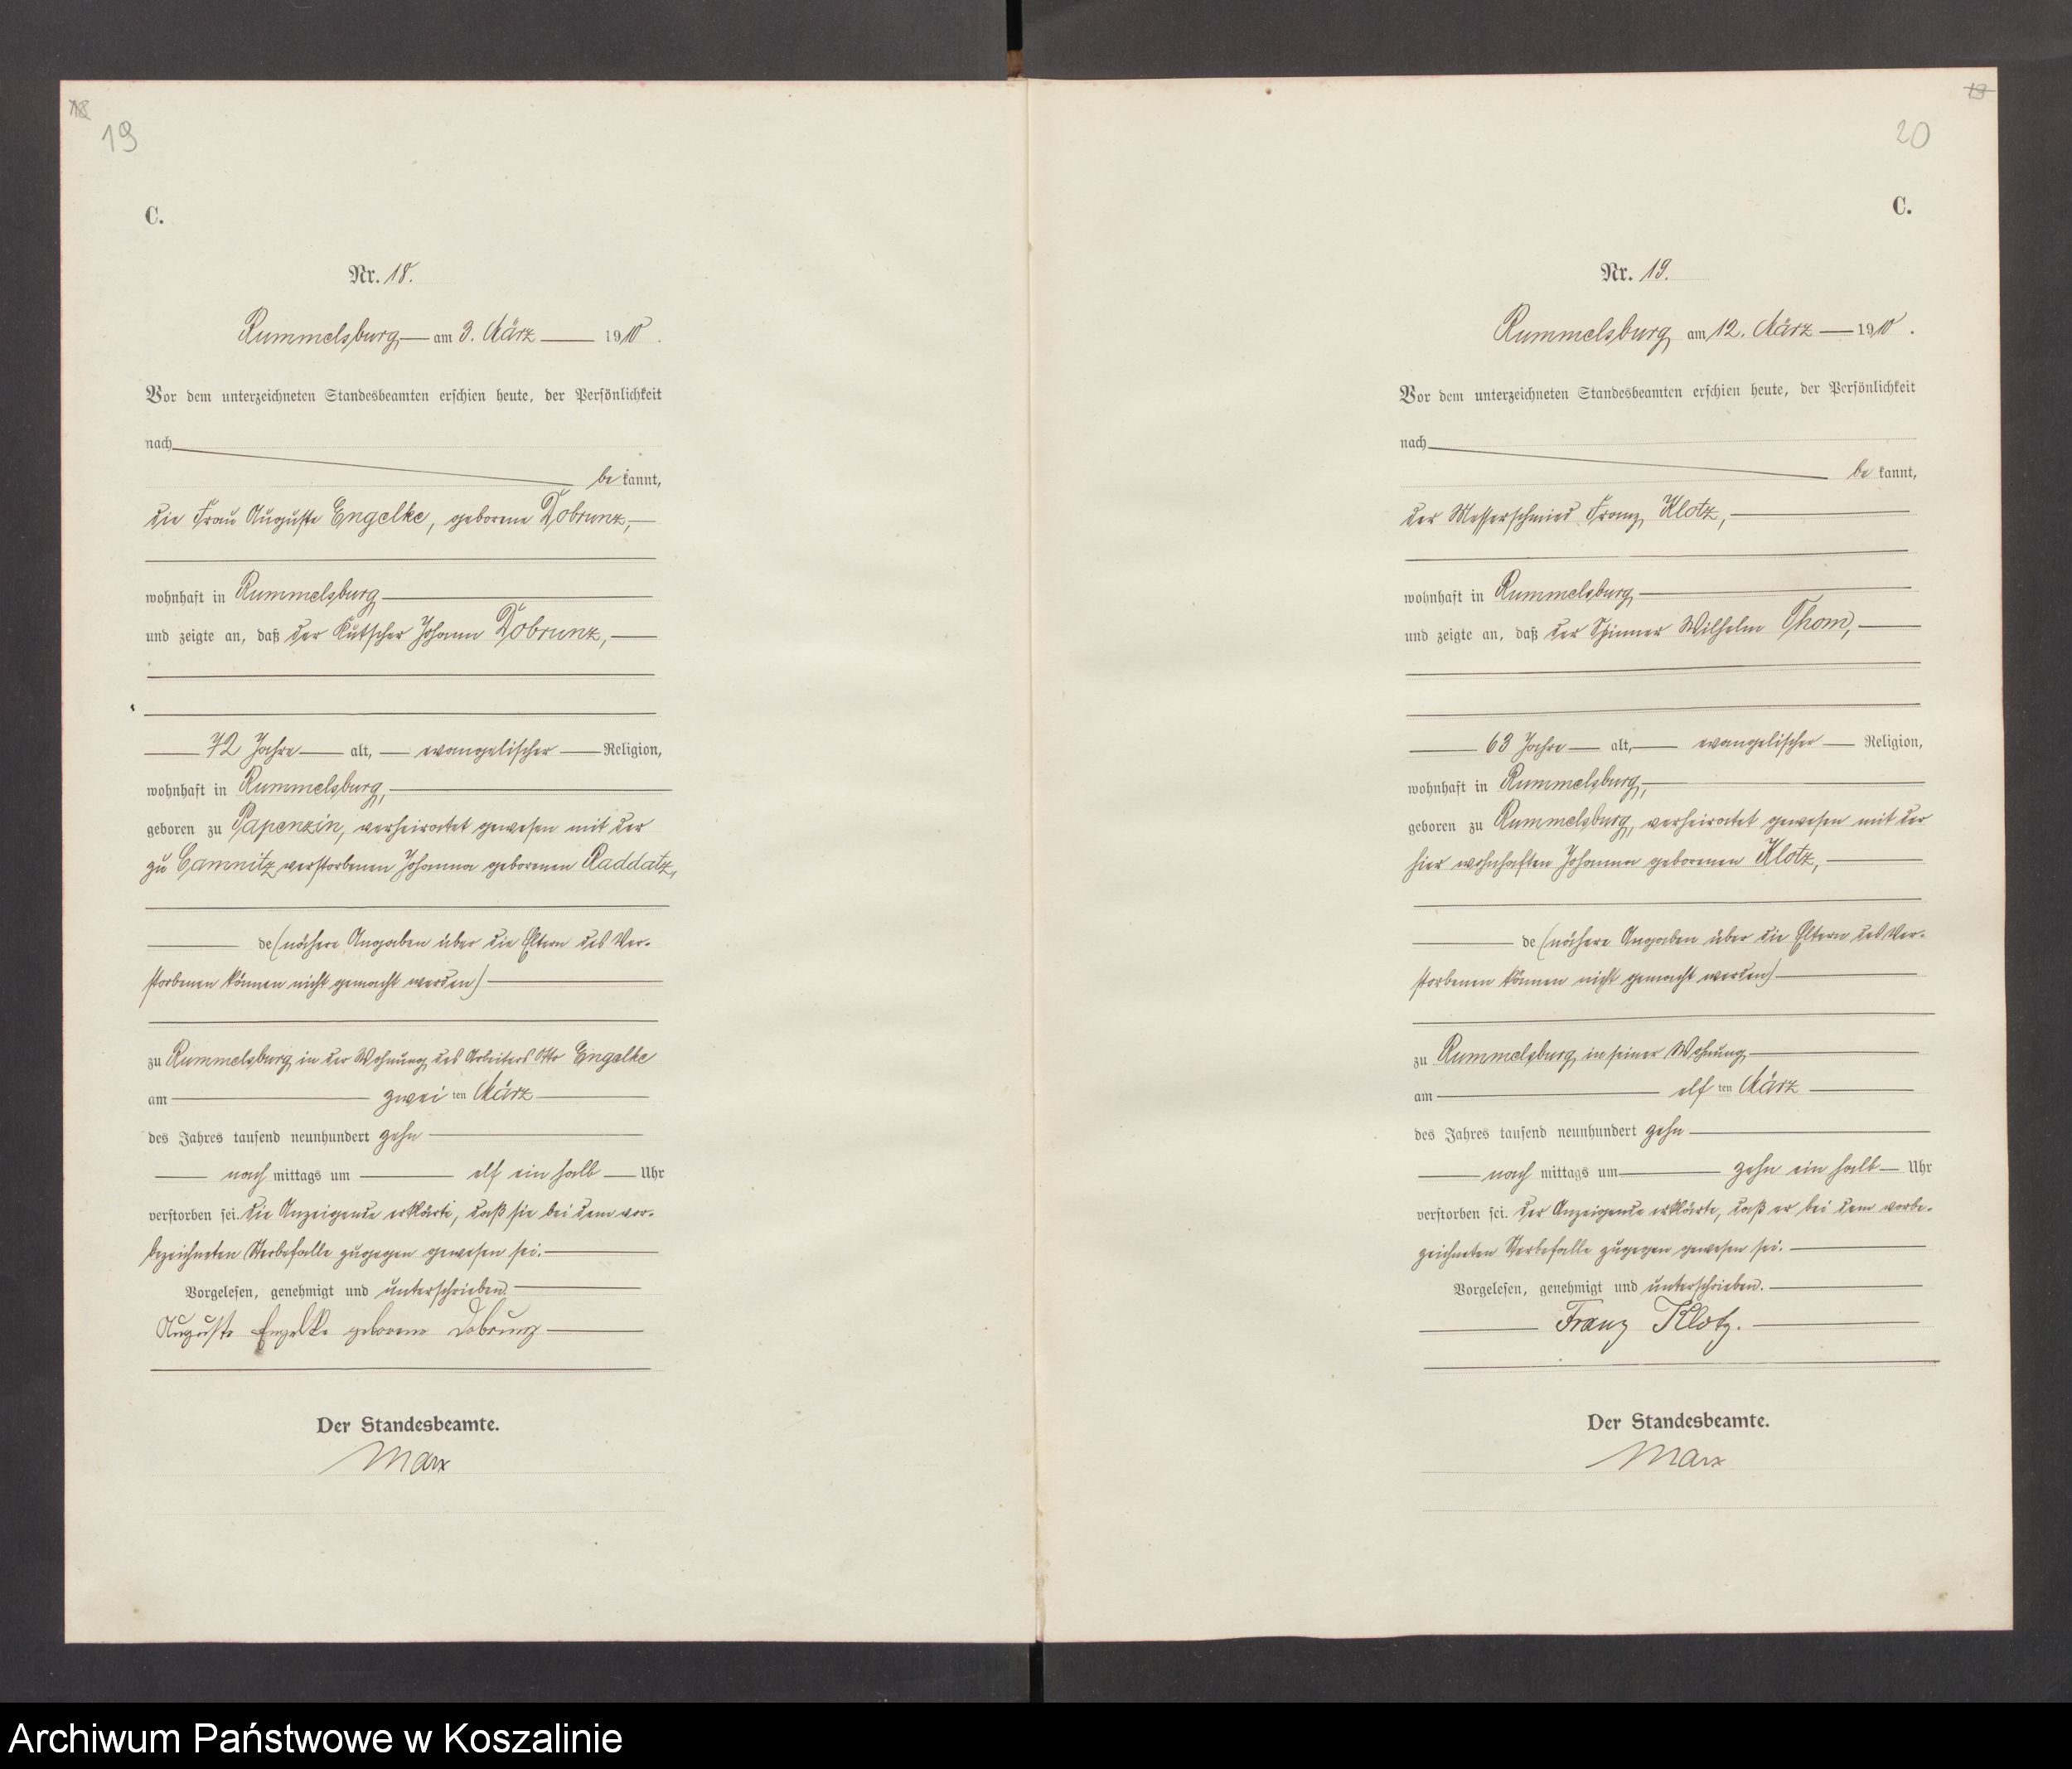 18
19
C.
Nr. 18.
Rummelsburg, am 3. März 1910.
Vor dem unterzeichneten Standesbeamten erschien heute, der Persönlichkeit
nach
bekannt,
die Frau Auguste Engelke, geborene Dobrunz,
wohnhaft in Rummelsburg
und zeigte an, daß der Kutscher Johann Dobrunz,
72 Jahre alt, evangelischer Religion,
wohnhaft in Rummelsburg,
geboren zu Papenzin, verheiratet gewesen mit der
zu Camnitz verstorbenen Johanna geborenen Raddatz,
de (nähere Angaben über die Eltern des Ver-
storbenen können nicht gemacht werden)
zu Rummelsburg, in der Wohnung des Arbeiters Otto Engelke
am zweiten März
des Jahres tausend neunhundert zehn
nachmittags um elf ein halb Uhr
verstorben sei. Die Anzeigende erklärte, daß sie bei dem vor-
bezeichneten Sterbefalle zugegen gewesen sei.
Vorgelesen, genehmigt und unterschrieben.
Auguste Engelke geborene Dobrunz
Der Standesbeamte.
Marx
19
20
C.
Nr. 19.
Rummelsburg, am 12. März 1910.
Vor dem unterzeichneten Standesbeamten erschien heute, der Persönlichkeit
nach
bekannt,
der Messerschmied Franz Klotz,
wohnhaft in Rummelsburg,
und zeigte an, daß der Spinner Wilhelm Thom,
63 Jahre alt, evangelischer Religion,
wohnhaft in Rummelsburg,
geboren zu Rummelsburg, verheiratet gewesen mit der
hier wohnhaften Johanna geborenen Klotz,
de (nähere Angaben über die Eltern des Ver-
storbenen können nicht gemacht werden)
zu Rummelsburg, in seiner Wohnung,
am elften März
des Jahres tausend neunhundert zehn
nachmittags um zehn ein halb Uhr
verstorben sei. Der Anzeigende erklärte, daß er bei dem vorbe-
zeichneten Sterbefalle zugegen gewesen sei.
Vorgelesen, genehmigt und unterschrieben.
Franz Klotz.
Der Standesbeamte.
Marx
Archiwum Państwowe w Koszalinie